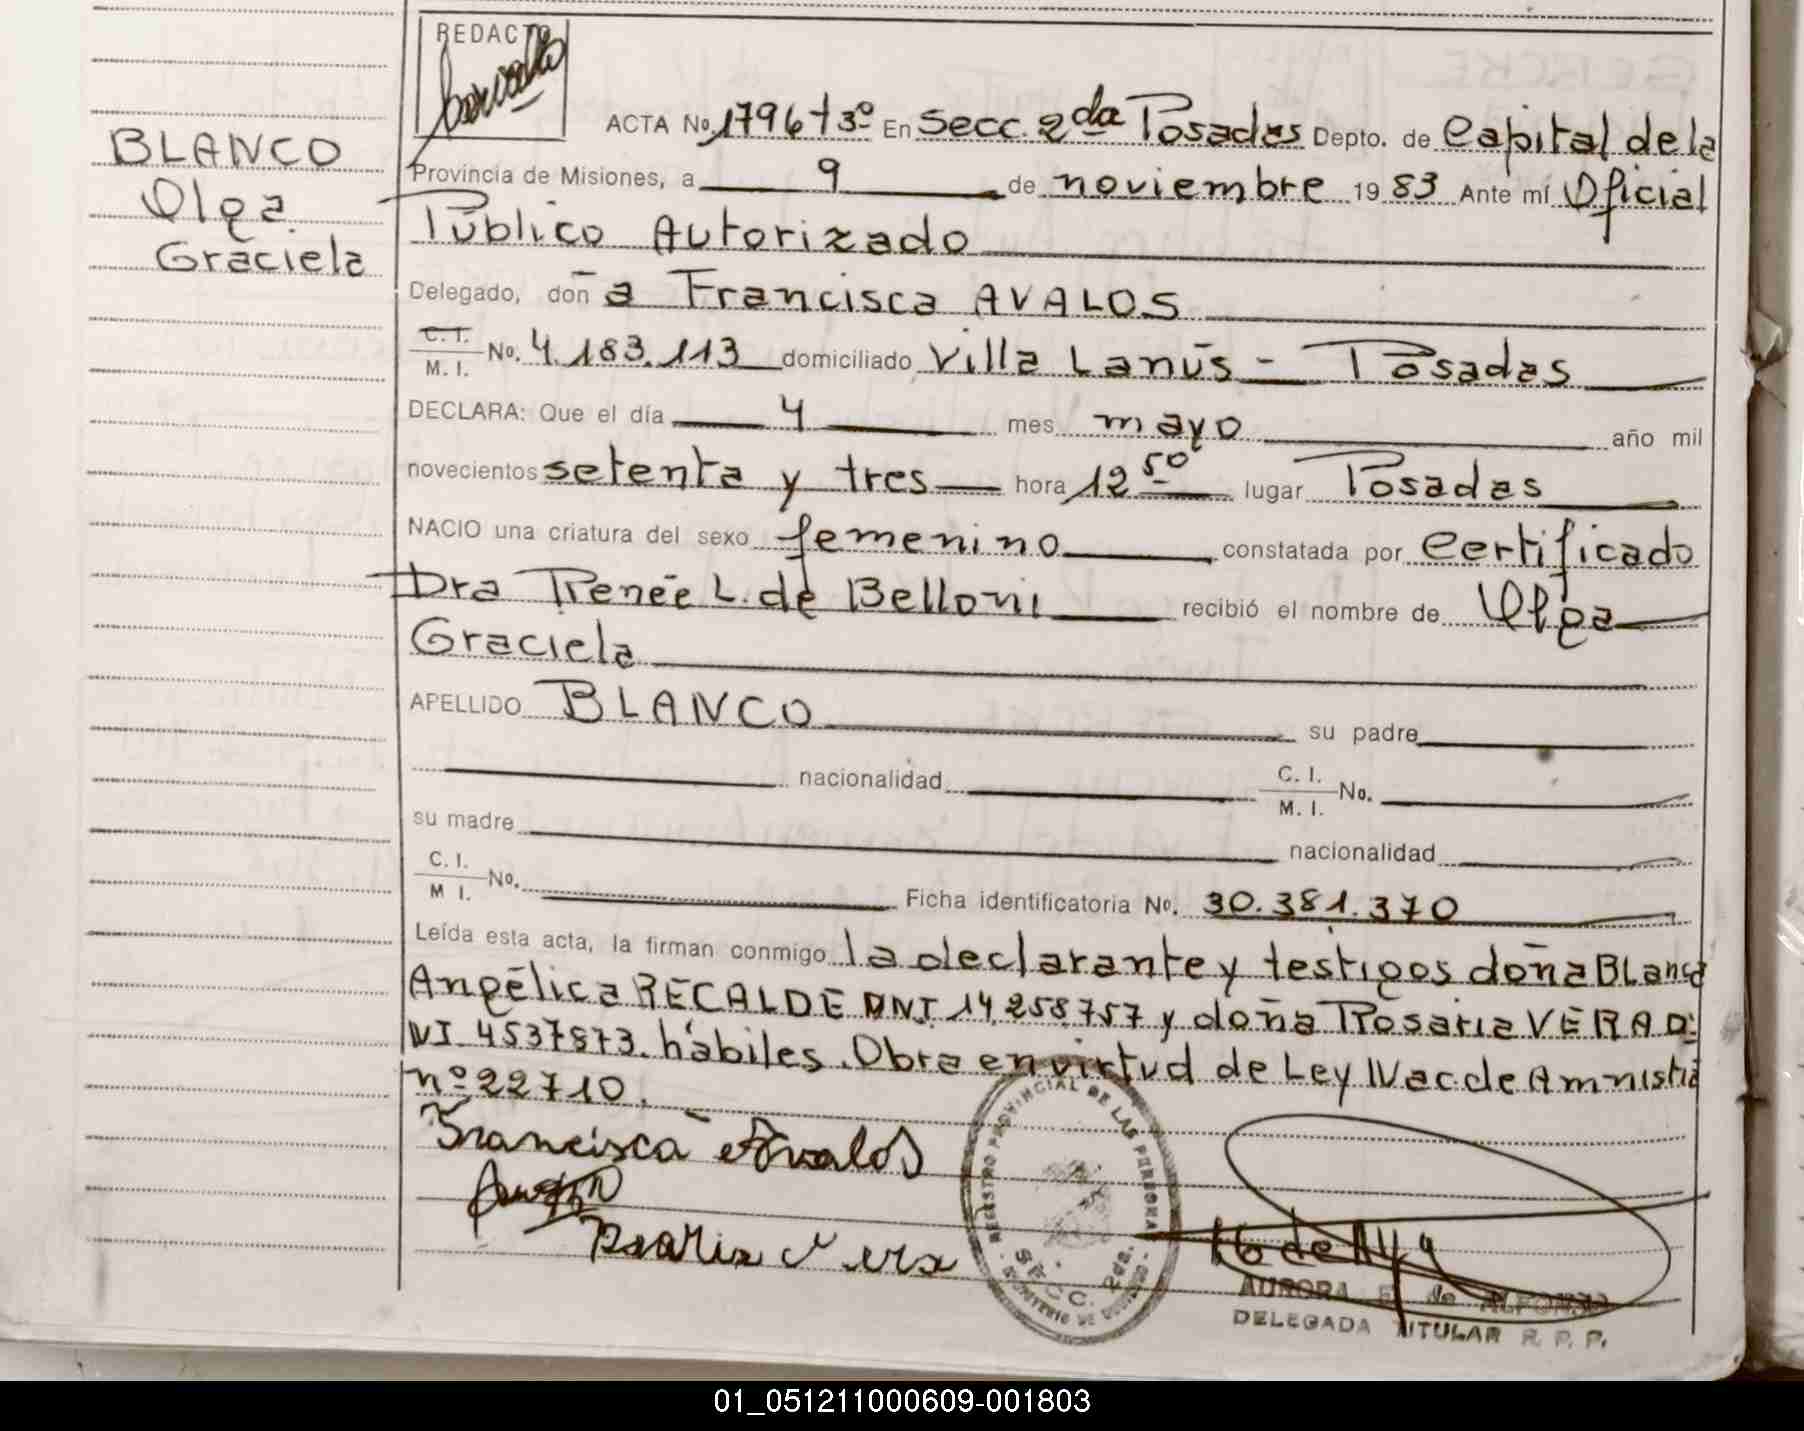 REDACTO
ACTA No. 1796 t 3º En Secc. 2da Posadas Depto. de Capital de la
BLANCO
Olga
Graciela
Provincia de Misiones, a 9 de noviembre 1983 Ante mí Oficial
Público Autorizado
Delegado, don a Francisca AVALOS
C. I.
M. I. No. 4.183.113 domiciliado Villa Lanús - Posadas
DECLARA: Que el día 4 mes mayo año mil
novecientos setenta y tres hora 12 50 lugar Posadas
NACIO una criatura del sexo femenino constatada por Certificado
Dra Renée L. de Belloni recibió el nombre de Olga
Graciela
APELLIDO BLANCO su padre
nacionalidad C. I.
M. I. No.
su madre nacionalidad
C. I.
M I. No. Ficha identificatoria No. 30.381.370
Leída esta acta, la firman conmigo la declarante y testigos doña Blanca
Angélica RECALDE DNI 14.258.757 y doña Rosaria VERA D:
NI 4537873. hábiles. Obra en virtud de Ley Nac. de Amnistia
nº 22710.
Francisca Avalos
Rosaria Vera
REGISTRO PROVINCIAL DE LAS PERSONAS
SECC. 2da.
MINISTERIO DE GOBIERNO
AURORA E. de ALFONSO
DELEGADA TITULAR R. P. P.
01_051211000609-001803